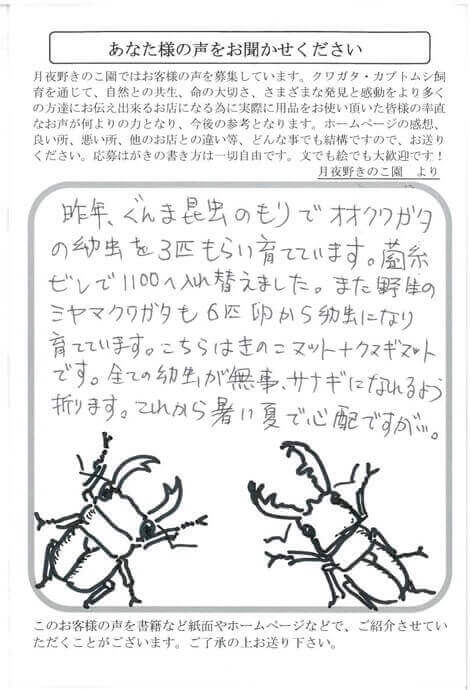 あなた様の声をお聞かせください
月夜野きのこ園ではお客様の声を募集しています。クワガタ・カブトムシ飼
育を通じて、自然との共生、命の大切さ、さまざまな発見と感動をより多く
の方達にお伝え出来るお店になる為に実際に用品をお使い頂いた皆様の率直
なお声が何よりの力となり、今後の参考となります。ホームページの感想、
良い所、悪い所、他のお店との違い等、どんな事でも結構ですので、お送り
ください。応募はがきの書き方は一切自由です。文でも絵でも大歓迎です！
月夜野きのこ園　より
昨年、ぐんま昆虫のもりでオオクワガタ
の幼虫を3匹もらい育てています。菌糸
ビンで1100へ入れ替えました。また野生の
ミヤマクワガタも6匹卵から幼虫になり
育てています。こちらはきのこマット+クヌギマット
です。全ての幼虫が無事、サナギになれるよう
祈ります。これから暑い夏で心配ですが…。
このお客様の声を書籍など紙面やホームページなどで、ご紹介させてい
ただくことがございます。ご了承の上お送り下さい。